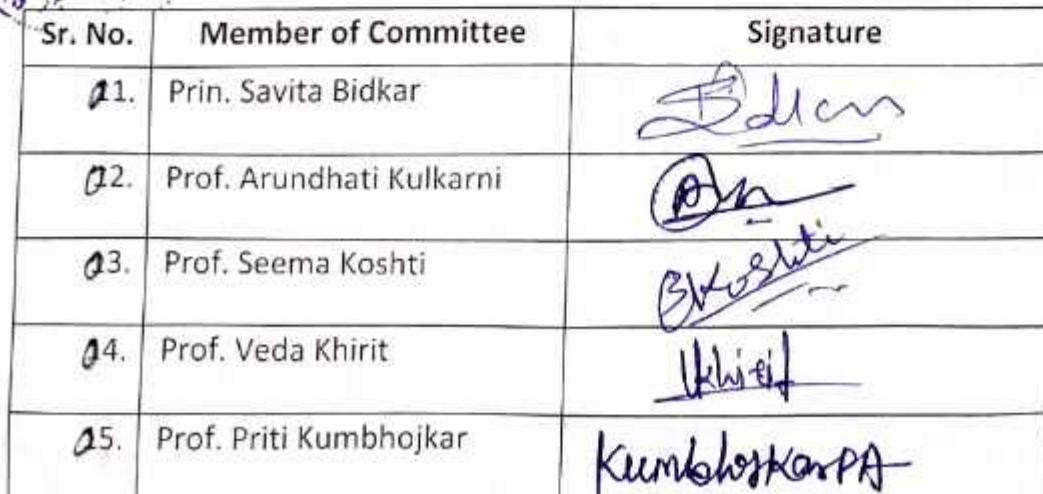 Sr. No. Member of Committee Signature
01. Prin. Savita Bidkar
02. Prof. Arundhati Kulkarni
03. Prof. Seema Koshti SKoshti
04. Prof. Veda Khirit VKhirit
05. Prof. Priti Kumbhojkar KumbhojkarPA